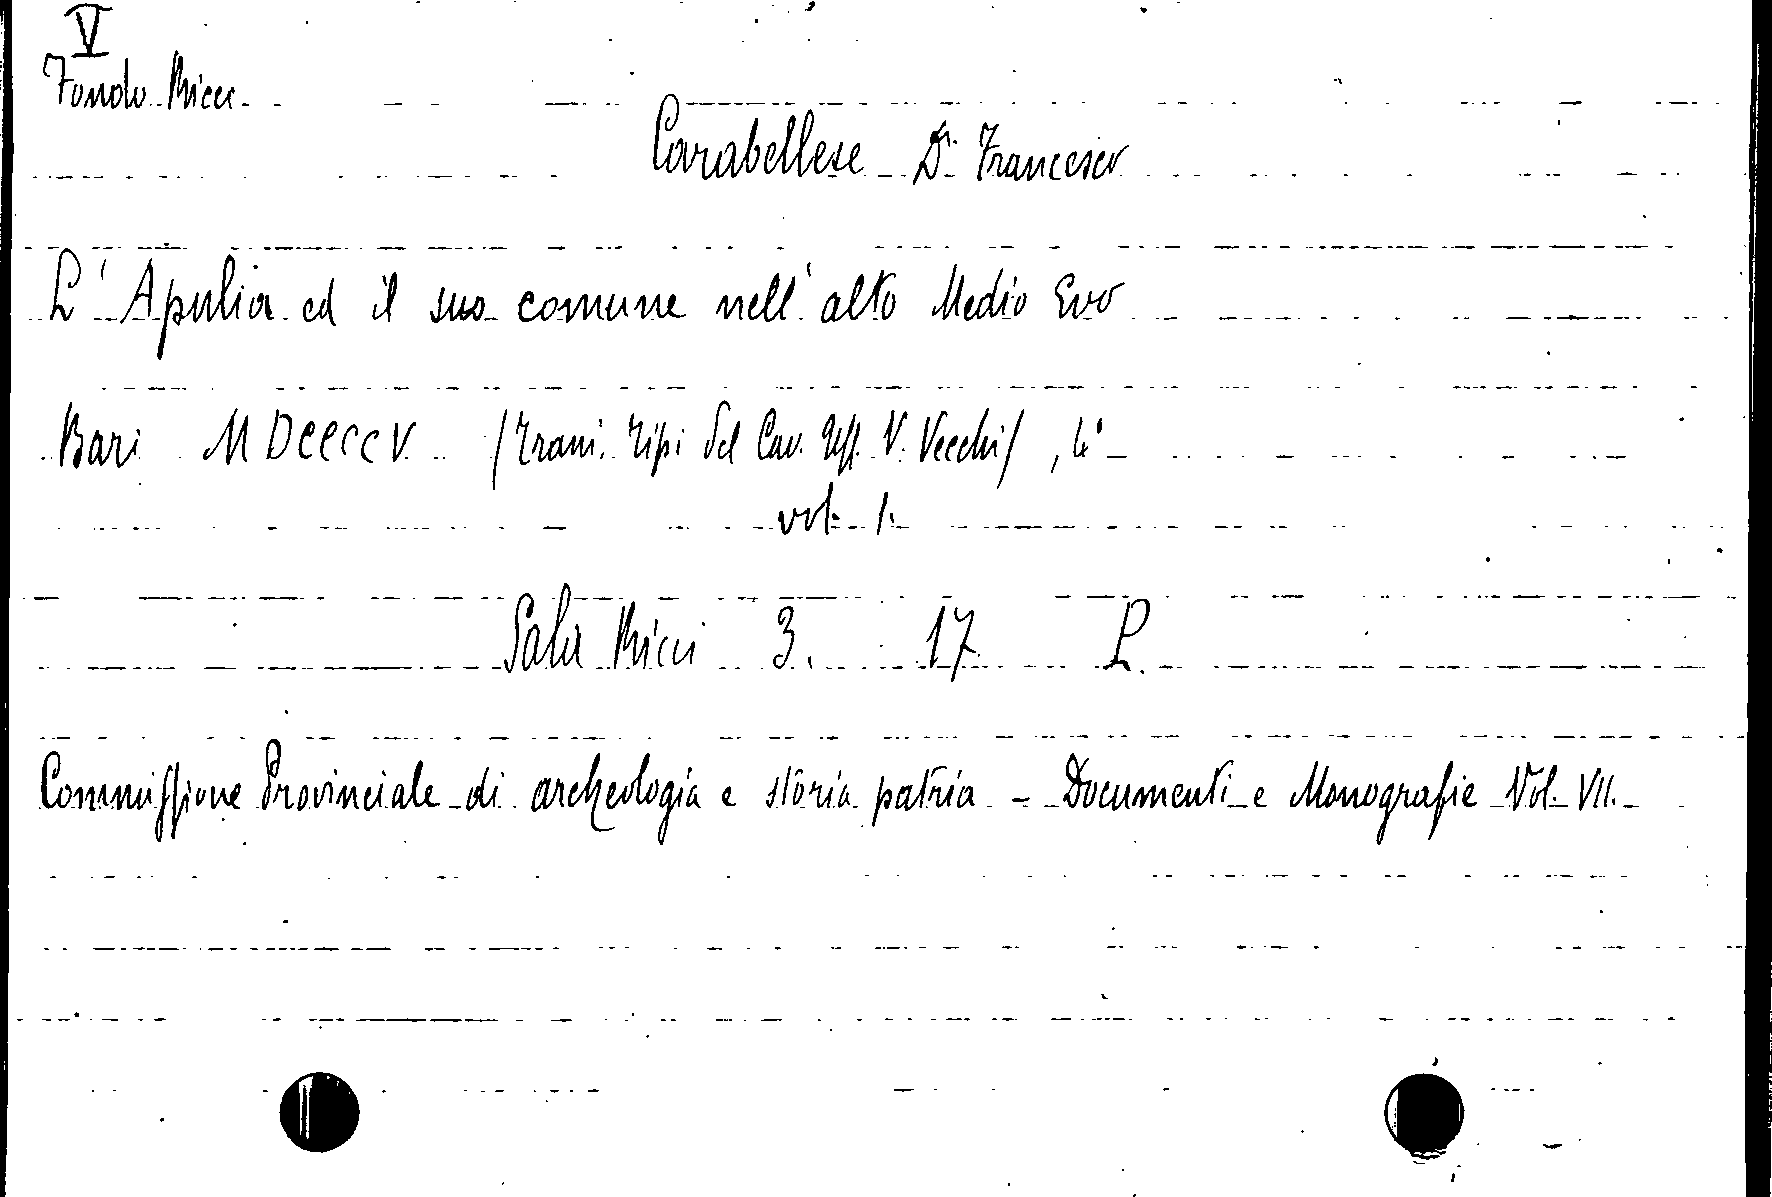 V
Fondo Ricci
Carabellese Dr. Francesco
L'Apulia ed il suo comune nell'alto Medio Evo
Bari MDCCCCV (Trani. Tipi del Cav. Uff. V. Vecchi), 4°
vol. 1.
Sala Ricci 3. 17 L.
Commissione Provinciale di archeologia e storia patria - Documenti e Monografie Vol. VII.